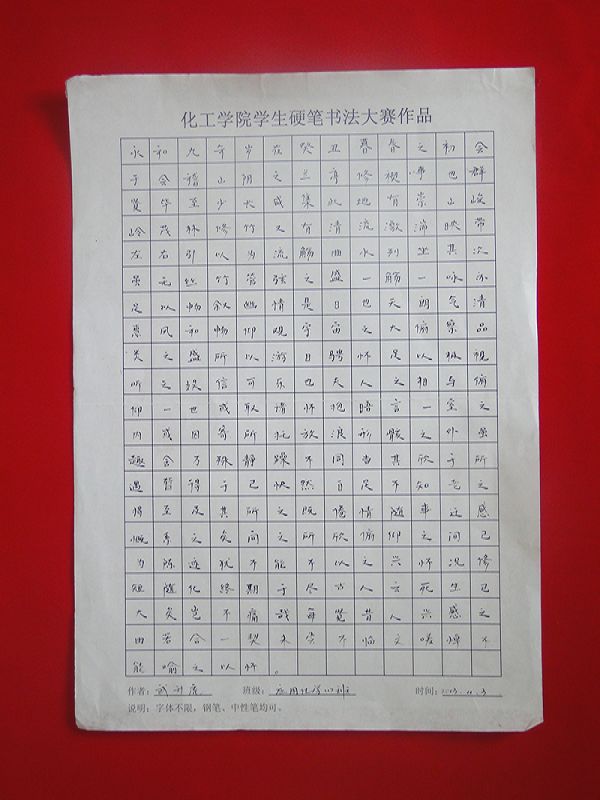 化工学院学生硬笔书法大赛作品
永和九年岁在癸丑暮春之初会
于会稽山阴之兰亭修禊事也群
贤毕至少长咸集此地有崇山峻
岭茂林修竹又有清流激湍映带
左右引以为流觞曲水列坐其次
虽无丝竹管弦之盛一觞一咏亦
足以畅叙幽情是日也天朗气清
惠风和畅仰观宇宙之大俯察品
类之盛所以游目骋怀足以极视
听之娱信可乐也夫人之相与俯
仰一世或取诸怀抱晤言一室之
内或因寄所托放浪形骸之外虽
趣舍万殊静躁不同当其欣于所
遇暂得于己快然自足不知老之
将至及其所之既倦情随事迁感
慨系之矣向之所欣俯仰之间已
为陈迹犹不能不以之兴怀况修
短随化终期于尽古人云死生
大矣岂不痛哉每览昔人兴感之
由若合一契未尝不临文嗟悼不
能喻之以怀。
作者: 班级: 应用化学 时间:
说明: 字体不限，钢笔、中性笔均可。